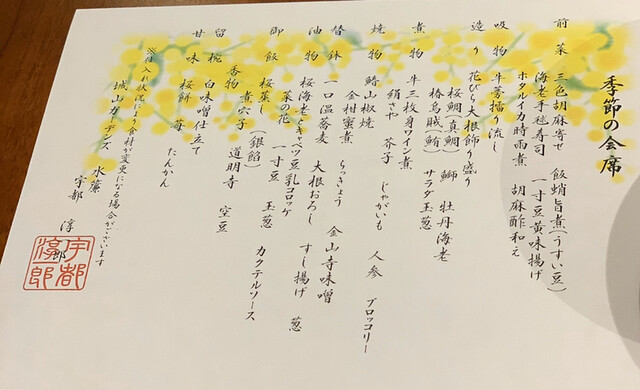 季節の会席
前菜 三色胡麻寄せ 飯蛸旨煮(うすい豆)
海老手毬寿司 一寸豆黄味揚げ
ホタルイカ時雨煮 胡麻酢和え
吸物 牛蒡擂り流し
造り 花びら大根飾り盛り
桜鯛(真鯛) 鰤 牡丹海老
椿烏賊(鮪) サラダ玉葱
煮物 牛三枚身ワイン煮
絹さや 芥子 じゃがいも 人参 ブロッコリー
焼物 鰆山椒焼
金柑蜜煮 らっきょう 金山寺味噌
替鉢 一口温蕎麦 大根おろし すし揚げ 葱
油物 桜海老とキャベツ豆乳コロッケ
菜の花 一寸豆 玉葱 カクテルソース
御飯 桜蒸し(銀餡)
煮穴子 道明寺 空豆
香物
留椀 白味噌仕立て
甘味 桜餅 苺 たんかん
※仕入れ状況により食材が変更になる場合がございます
城山ガーデンズ 水簾
宇都 淳一郎
宇都淳一郎